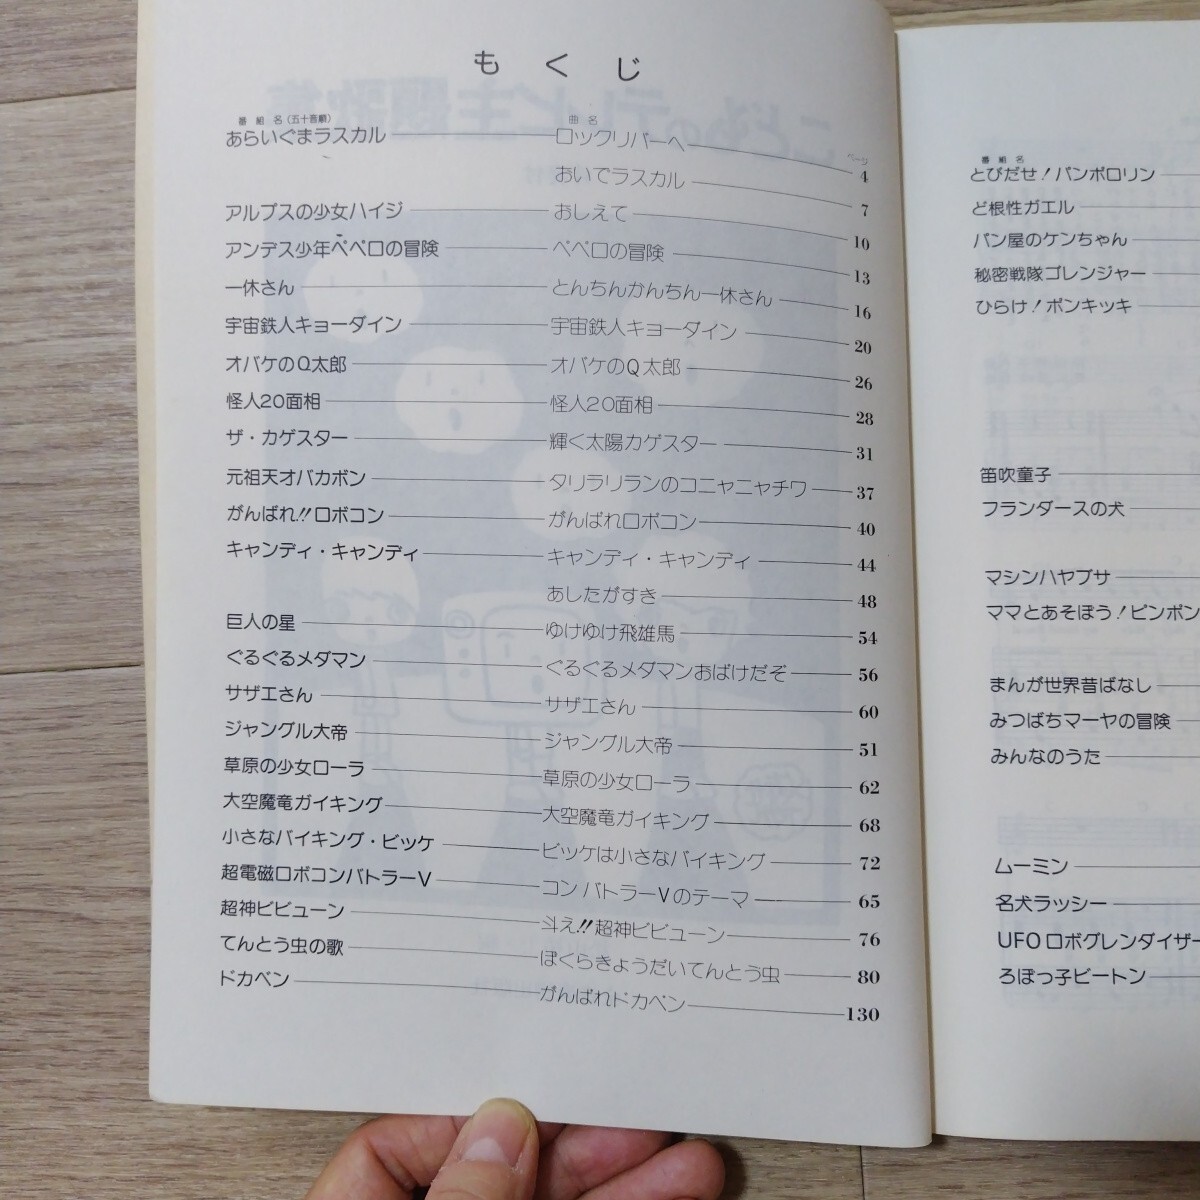 もくじ
番組名(五十音順) 曲名 ページ
あらいぐまラスカル ロックリバーへ 4
おいでラスカル 7
アルプスの少女ハイジ おしえて 10
アンデス少年ペペロの冒険 ペペロの冒険 13
一休さん とんちんかんちん一休さん 16
宇宙鉄人キョーダイン 宇宙鉄人キョーダイン 20
オバケのQ太郎 オバケのQ太郎 26
怪人20面相 怪人20面相 28
ザ・カゲスター 輝く太陽カゲスター 31
元祖天才バカボン タリラリランのコニャニャチワ 37
がんばれ!!ロボコン がんばれロボコン 40
キャンディ・キャンディ キャンディ・キャンディ 44
あしたがすき 48
巨人の星 ゆけゆけ飛雄馬 54
ぐるぐるメダマン ぐるぐるメダマンおばけだぞ 56
サザエさん サザエさん 60
ジャングル大帝 ジャングル大帝 51
草原の少女ローラ 草原の少女ローラ 62
大空魔竜ガイキング 大空魔竜ガイキング 68
小さなバイキング・ビッケ ビッケは小さなバイキング 72
超電磁ロボコンバトラーV コン バトラーVのテーマ 65
超神ビビューン 斗え!!超神ビビューン 76
てんとう虫の歌 ぼくらきょうだいてんとう虫 80
ドカベン がんばれドカベン 130
番組名
とびだせ!パンポロリン
ど根性ガエル
パン屋のケンちゃん
秘密戦隊ゴレンジャー
ひらけ!ポンキッキ
笛吹童子
フランダースの犬
マシンハヤブサ
ママとあそぼう!ピンポン
まんが世界昔ばなし
みつばちマーヤの冒険
みんなのうた
ムーミン
名犬ラッシー
UFOロボグレンダイザー
ろぼっ子ビートン